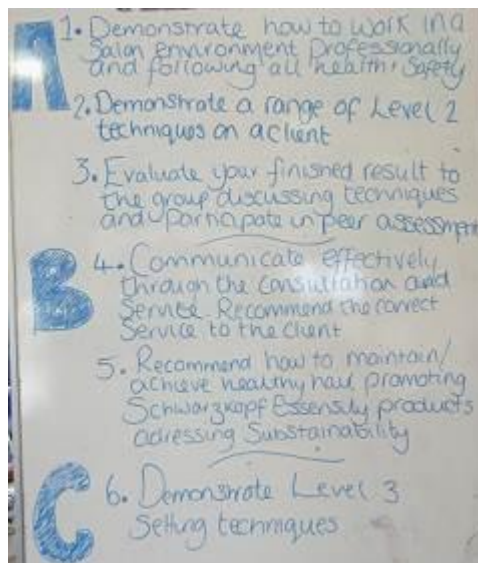 A
1. Demonstrate how to work in a
Salon environment Professionally
and following all health + Safety
2. Demonstrate a range of Level 2
techniques on a client
3. Evaluate your finished result to
the group discussing techniques
and participate in peer assessment
B
4. Communicate effectively
through the Consultation and
Service. Recommend the correct
Service to the client
5. Recommend how to maintain/
achieve healthy hair promoting
Schwarzkopf Essensity products
adressing Substainability
C
6. Demonstrate Level 3
Setting techniques